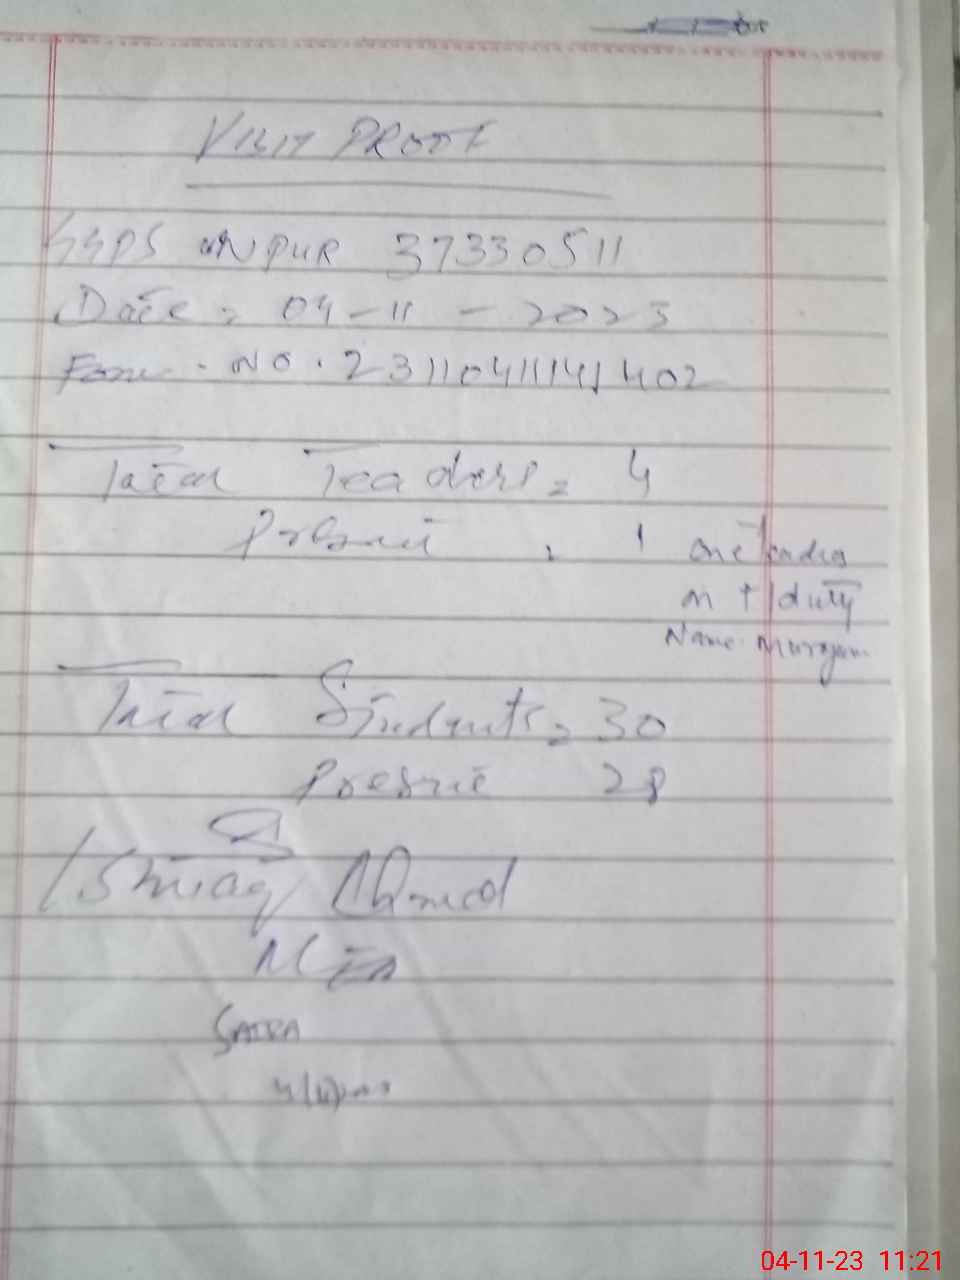 VISIT PROOF
GGPS PUR 37330511
Date = 04-11-2023
Form. NO. 23110411141402
Total Teachers = 4
Present = 1 one Teacher
on T/duty
Name. Maryam
Total Students = 30
Present 28
Ishtiaq Ahmed
MEA
SAIRA
04-11-23 11:21